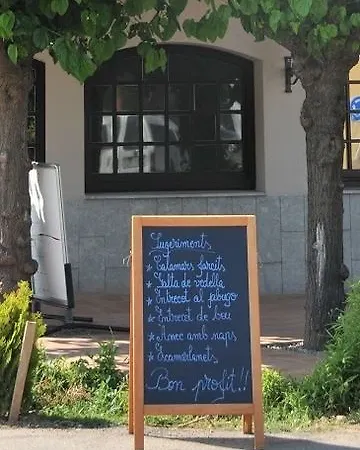 Sugeriments
* Calamars farcits
* Galta de vedella
* Entrecot al pebugo
* Entrecot de bou
* Ànec amb naps
* Escamarlanets
Bon profit!!